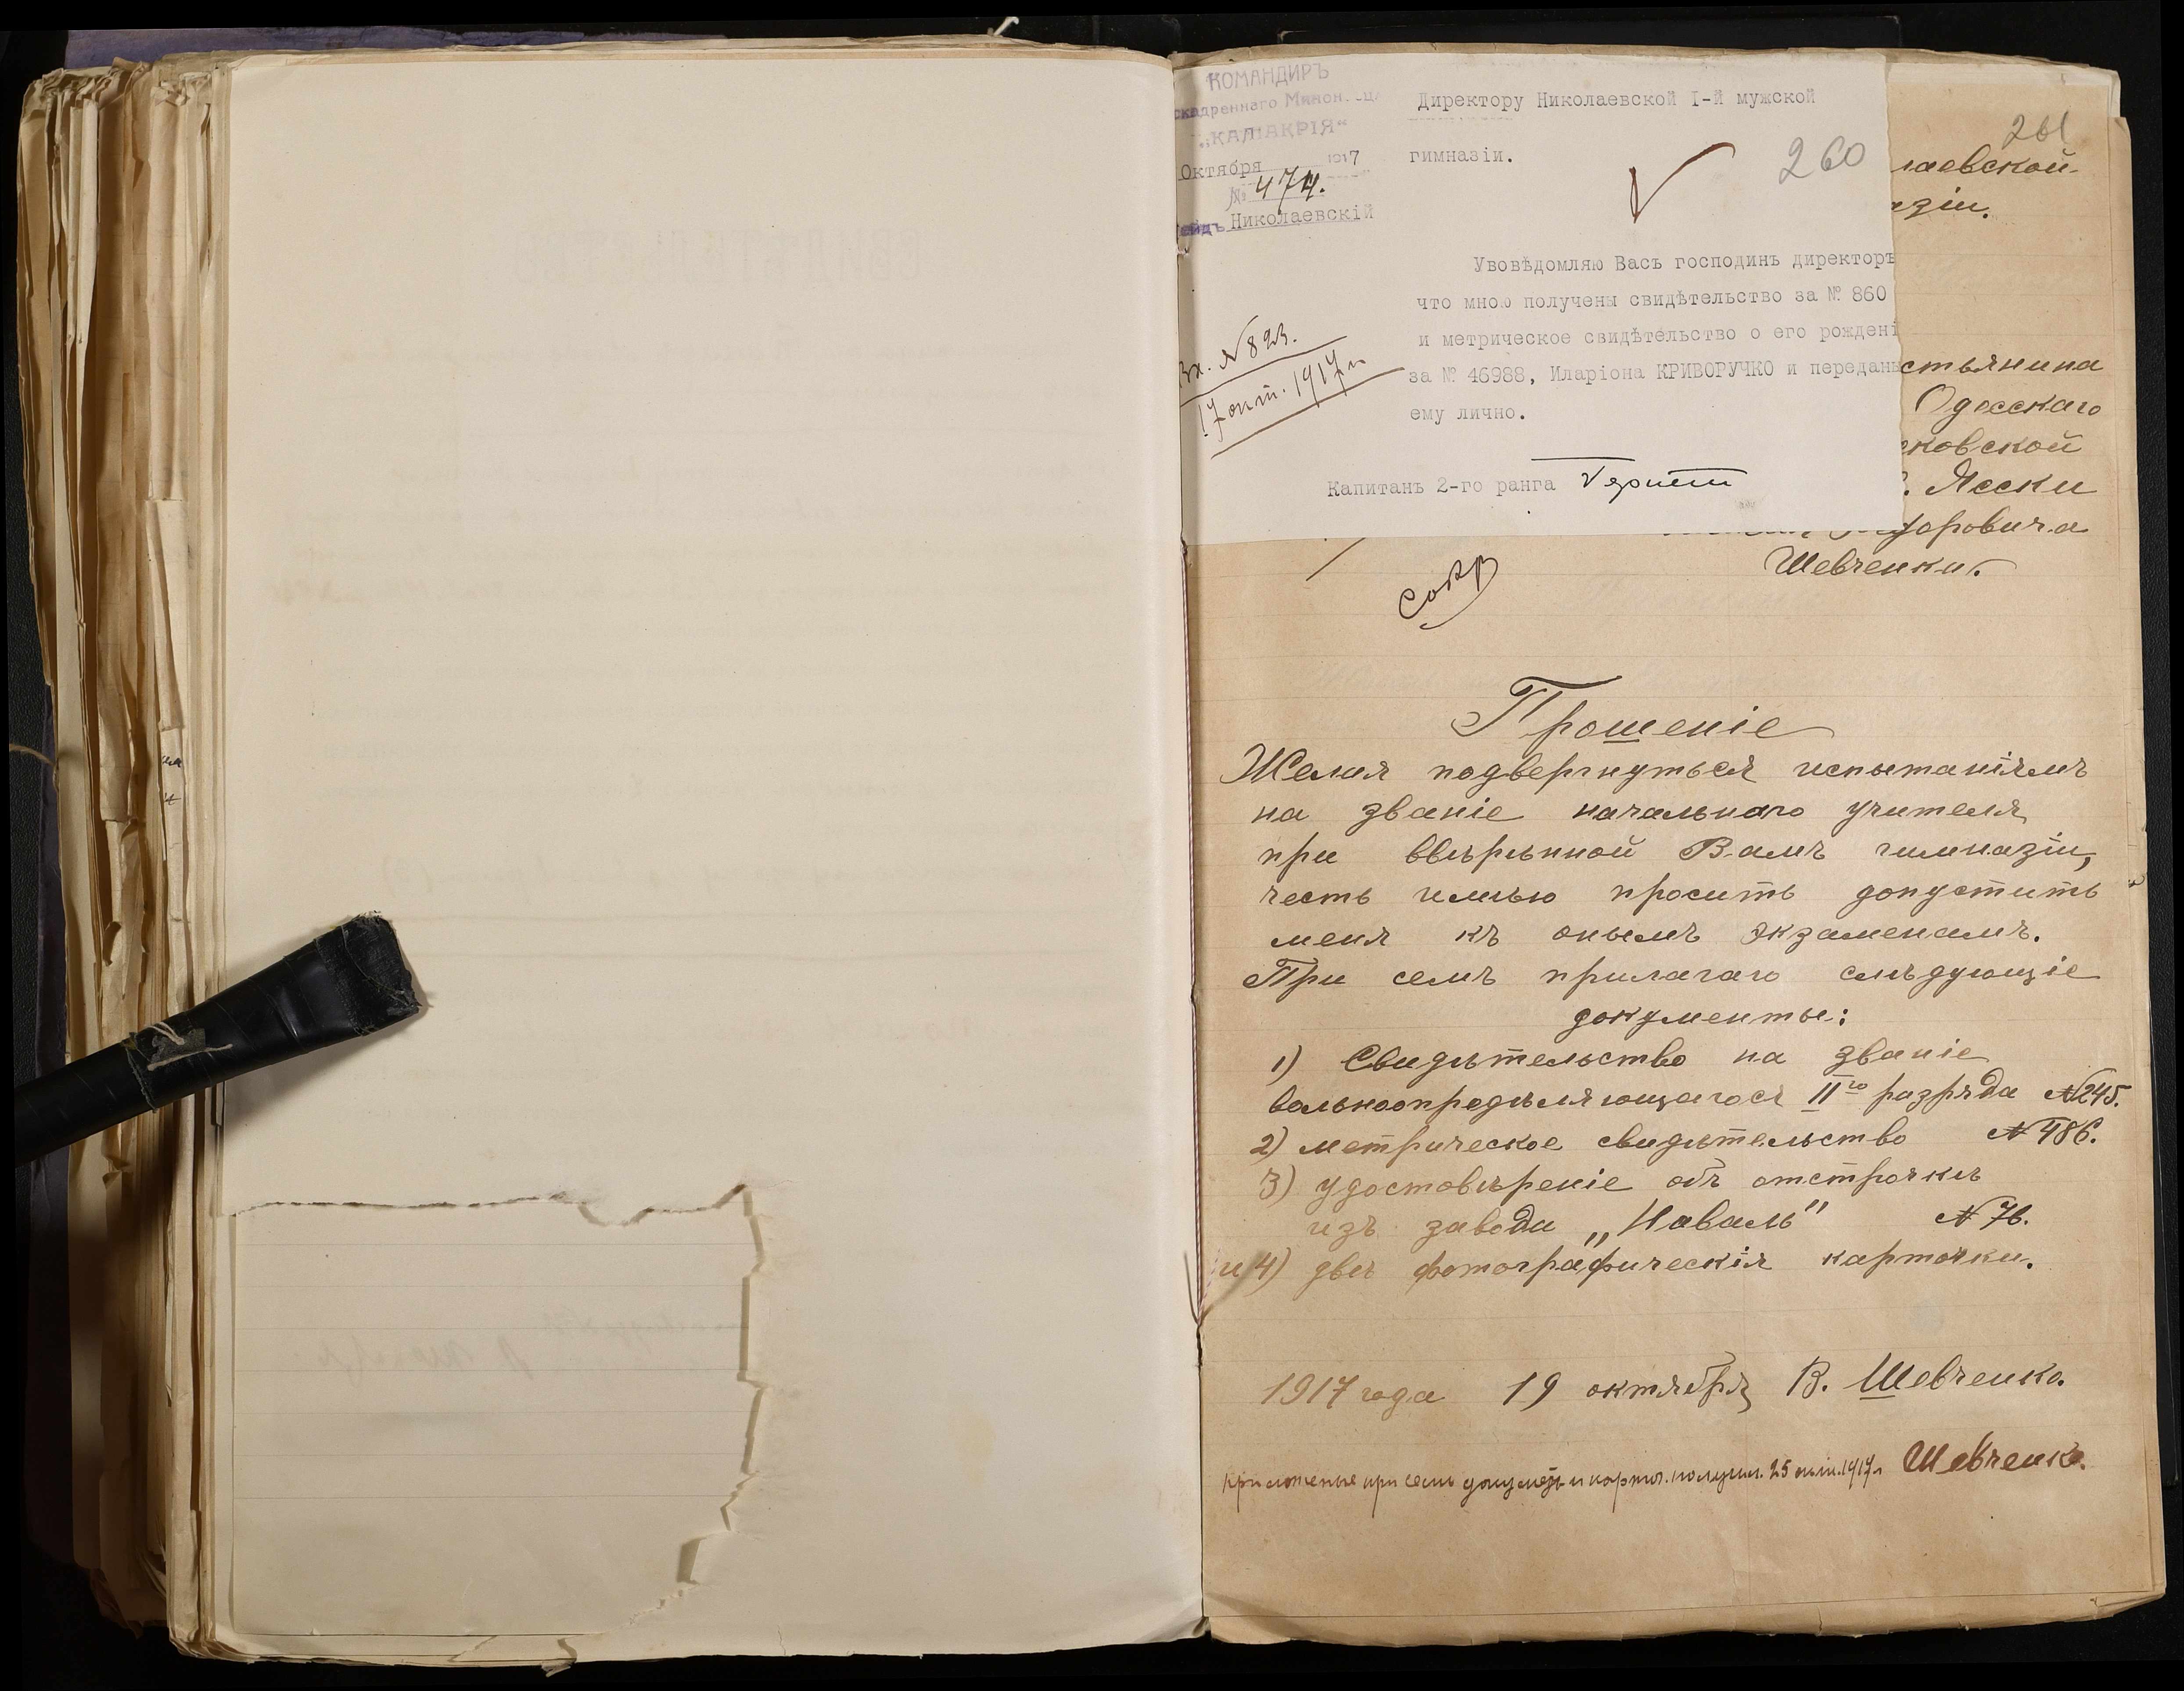 КОМАНДИРЪ
скадреннаго Минон
„КАЛІАКРІЯ“
Октября 1917
№ 474.
ейдъ Николаевскій
Директору Николаевской I-й мужской
гимназіи.
260
Увовѣдомляю Васъ господинъ директоръ
что мною получены свидѣтельство за № 860
и метрическое свидѣтельство о его рожденi
за № 46988, Иларіона КРИВОРУЧКО и переданы
ему лично.
Капитанъ 2-го ранга
Вх. № 823.
17 окт. 1917 г.
261
лаевской
азіи.
стьянина
Одесскаго
ковской
. Ясски
доровича
Шевченки.
Прошеніе
Желая подвергнуться испытаніямъ
на званіе начальнаго учителя
при ввѣрѣнной Вамъ гимназіи,
честь имѣю просить допустить
меня къ онымъ экзаменамъ.
При семъ прилагаю слѣдующіе
документы:
1) Свидѣтельство на званіе
вольноопредѣляющагося II го разряда №245.
2) метрическое свидѣтельство №486.
3) удостовѣреніе объ отстрочкѣ
изъ завода „Наваль" №76.
и 4) двѣ фотографическія карточки.
1917 года 19 октября В. Шевченко.
Приложенные при семъ докумен. и карточ. получил. 25 окт. 1917 г. Шевченко.